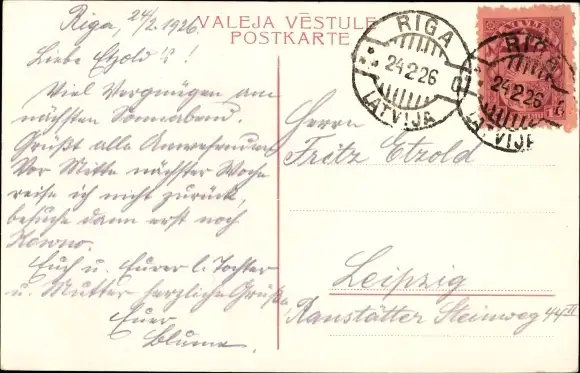 VALEJA VĒSTULE
POSTKARTE
Riga, 24/2. 1926.
Liebe Etzold's!
Viel Vergnügen am
nächsten Sonnabend.
Grüßt alle Anwesenden
Vor Mitte nächster Woche
reise ich nicht zurück,
besuche dann erst noch
Kowno.
Euch u. Eurer l. Tochter
u. Mutter herzliche Grüße,
Euer
Blume.
RIGA
24.2.26
LATVIJA
RIGA
24.2.26
LATVIJA
LATVIJA
Herrn
Fritz Etzold
Leipzig
Ranstätter Steinweg 44 II